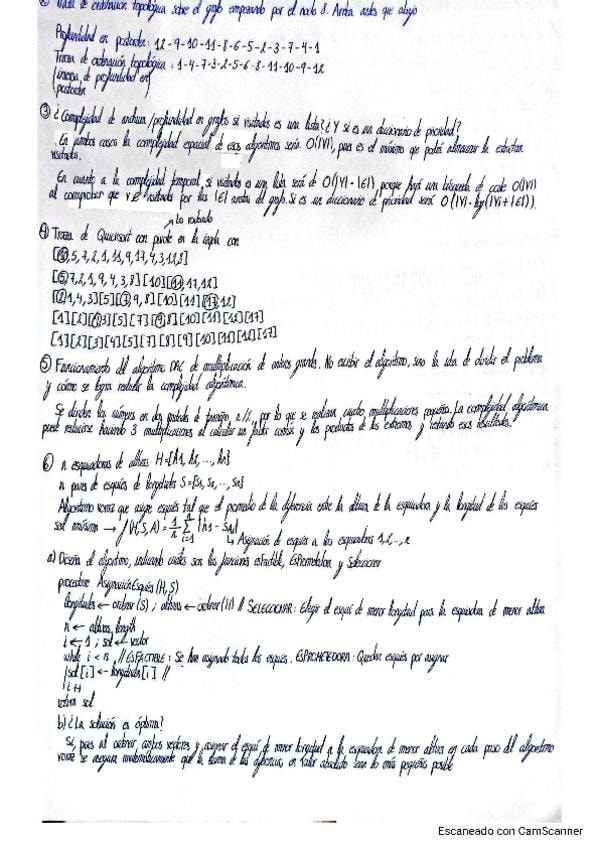 ② Traza de ordenación topológica sobre el grafo empezando por el nodo 1. Arriba antes que abajo
Profundidad en postorden: 12-9-10-11-8-6-5-2-3-7-4-1
Traza de ordenación topológica: 1-4-7-3-2-5-6-8-11-10-9-12
(inversa de profundidad en
postorden
③ ¿Complejidad de anchura/profundidad en grafos si visitados es una lista? ¿Y si es un diccionario de prioridad?
En ambos casos la complejidad espacial de esos algoritmos sería O(|V|), pues es el máximo que podrá almacenar la estructura
visitados.
En cuanto a la complejidad temporal, si visitados es una lista será de O(|V|·|E|), porque hará una búsqueda de coste O(|V|)
al comprobar que v∉visitados por las |E| aristas del grafo. Si es un diccionario de prioridad será O(|V|·log(|V|+|E|)).
④ Traza de Quicksort con pivote en la izqda con
[10,5,7,2,1,11,9,17,4,3,12,8]
[5,7,2,1,9,4,3,8][10][11,17,12]
[2,1,4,3][5][7,9,8][10][11][17,12]
[1][2][4,3][5][7][9,8][10][11][12][17]
[1][2][3][4][5][7][8][9][10][11][12][17]
⑤ Funcionamiento del algoritmo DAC de multiplicación de enteros grandes. No escribir el algoritmo, sino la idea de dividir el problema
y cómo se logra reducir la complejidad algorítmica.
Se dividen los números en dos mitades de tamaño n/2, por lo que se realizan cuatro multiplicaciones pequeñas. La complejidad algorítmica
puede reducirse haciendo 3 multiplicaciones al calcular un factor común y los productos de los extremos y restando esos resultados.
⑥ n esquiadores de alturas H={h1, h2, ..., hn}
n pares de esquíes de longitudes S={s1, s2, ..., sn}
Algoritmo voraz que asigne esquíes tal que el promedio de la diferencia entre la altura de los esquiadores y la longitud de los esquíes
sea mínimo → f(H,S,A) = 1/n Σ i=1 n |hi - sai|
↳ Asignación de esquíes a los esquiadores 1,2,...,n
a) Diseña el algoritmo, indicando cuáles son las funciones esFactible, EsPrometedora y Seleccionar
procedure AsignaciónEsquíes(H,S)
longitudes ← ordenar(S); alturas ← ordenar(H) // SELECCIONAR: Elegir el esquí de menor longitud para la esquiadora de menor altura
n ← alturas.length
i ← 1; sol ← vector
while i < n // ESFACTIBLE: Se han asignado todos los esquíes. ESPROMETEDORA: Quedan esquíes por asignar
sol[i] ← longitudes[i] //
i++
return sol
b) ¿La solución es óptima?
Sí, pues al ordenar ambos vectores y asignar el esquí de menor longitud a la esquiadora de menor altura en cada paso del algoritmo
voraz se asegura matemáticamente que la suma de las diferencias en valor absoluto sean lo más pequeñas posible
Escaneado con CamScanner